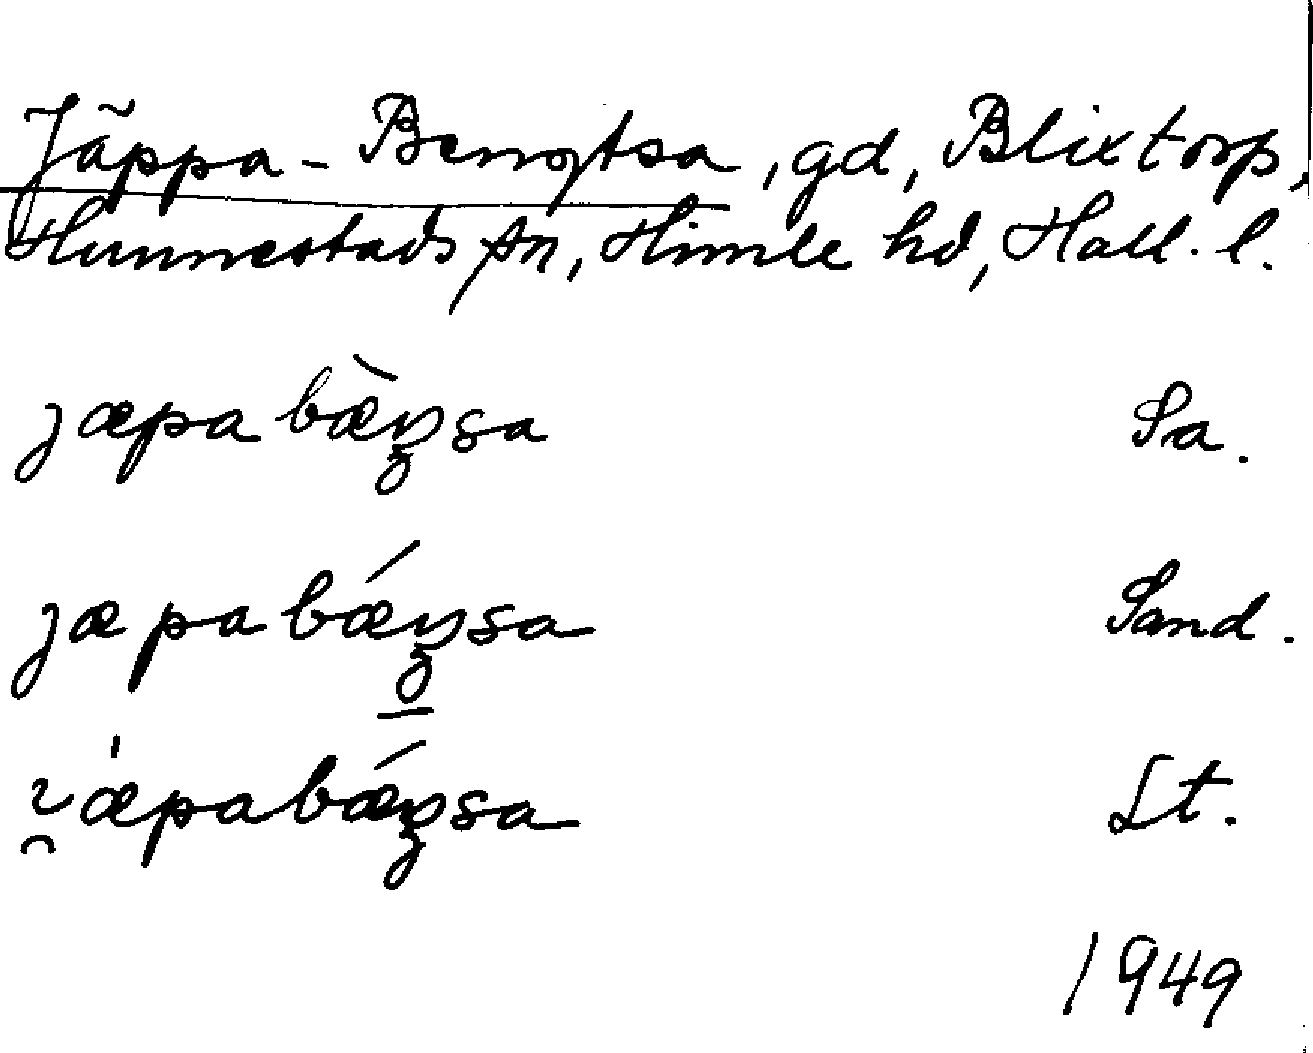 Jäppa-Bengtsa, gd, Blixtorp,
Hunnestads sn, Himle hd, Hall. l.
jæpabæ̀ŋsa Sa.
jæpabǽŋsa Sand.
Lt.
1949